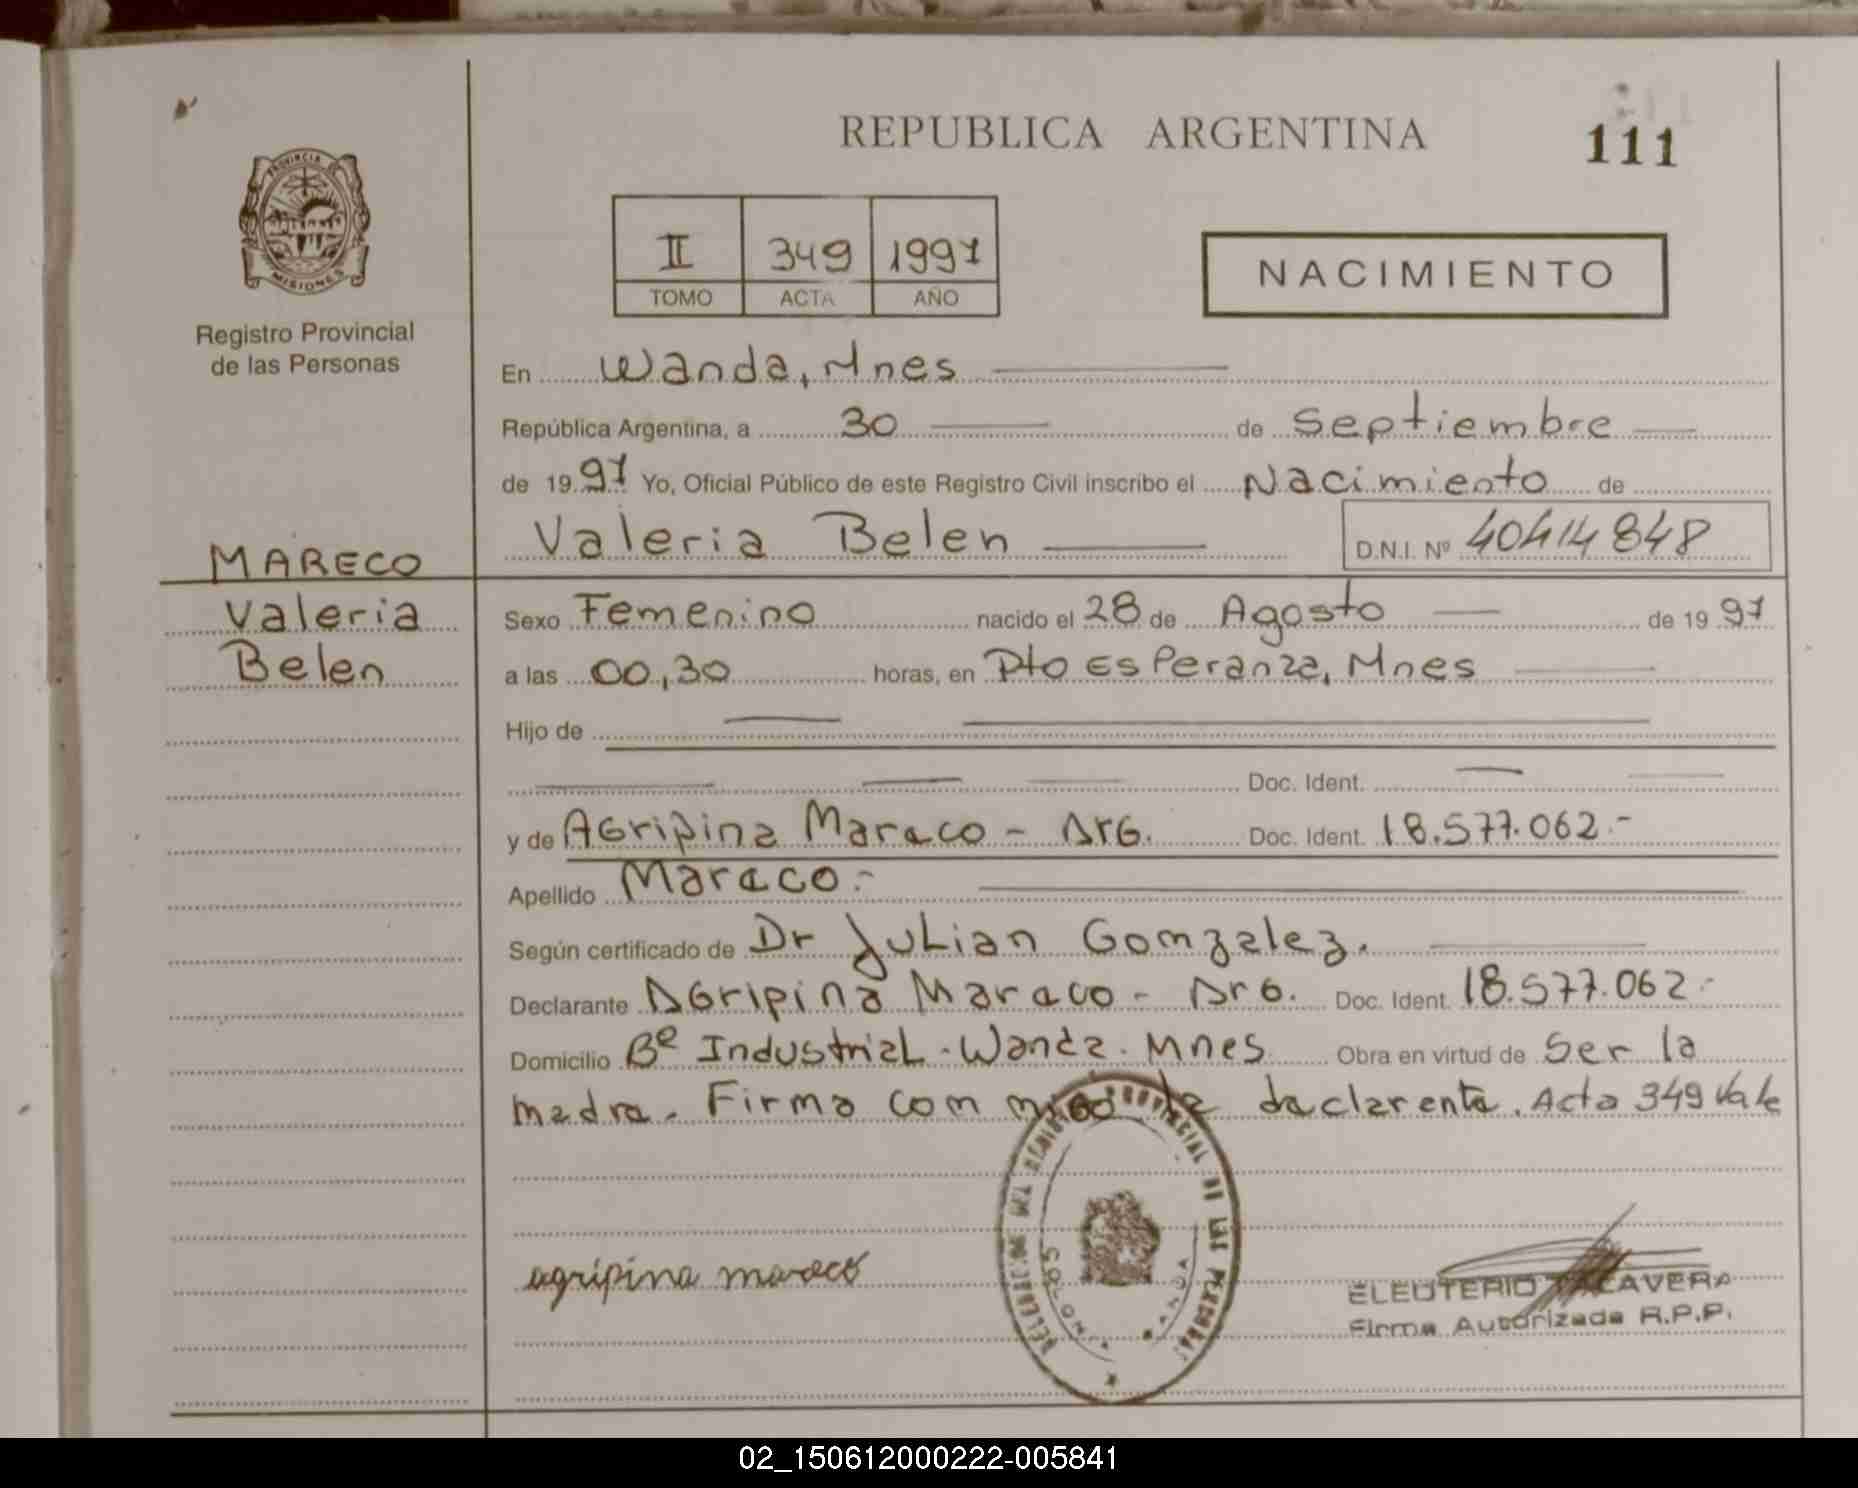 REPUBLICA ARGENTINA
111
PROVINCIA
MISIONES
Registro Provincial
de las Personas
II 349 1997
TOMO ACTA AÑO
NACIMIENTO
En Wanda, Mnes
República Argentina, a 30 de septiembre
de 1997 Yo, Oficial Público de este Registro Civil inscribo el Nacimiento de
Valeria Belen D.N.I. Nº 40414848
MARECO
Valeria
Belen
Sexo Femenino nacido el 28 de Agosto de 1997
a las 00,30 horas, en Pto Esperanza, Mnes
Hijo de
Doc. Ident.
y de Agripina Mareco - Arg. Doc. Ident. 18.577.062.-
Apellido Mareco.-
Según certificado de Dr Julian Gomzalez.
Declarante Agripina Mareco - Arg. Doc. Ident. 18.577.062.-
Domicilio Bº Industrial - Wanda - Mnes Obra en virtud de Ser la
madre. Firma com migo la declarente. Acta 349 Vale
agripina mareco
ELEUTERIO TALAVERA
Firma Autorizada R.P.P.
02_150612000222-005841